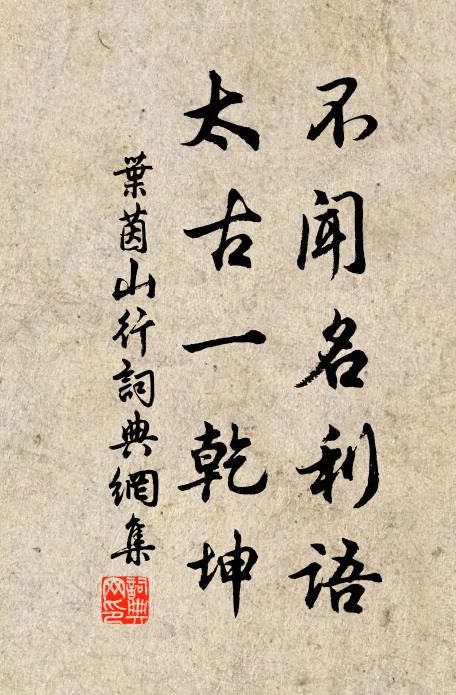 不聞名利語
太古一乾坤
葉茵山行詞典網集
詞典网印